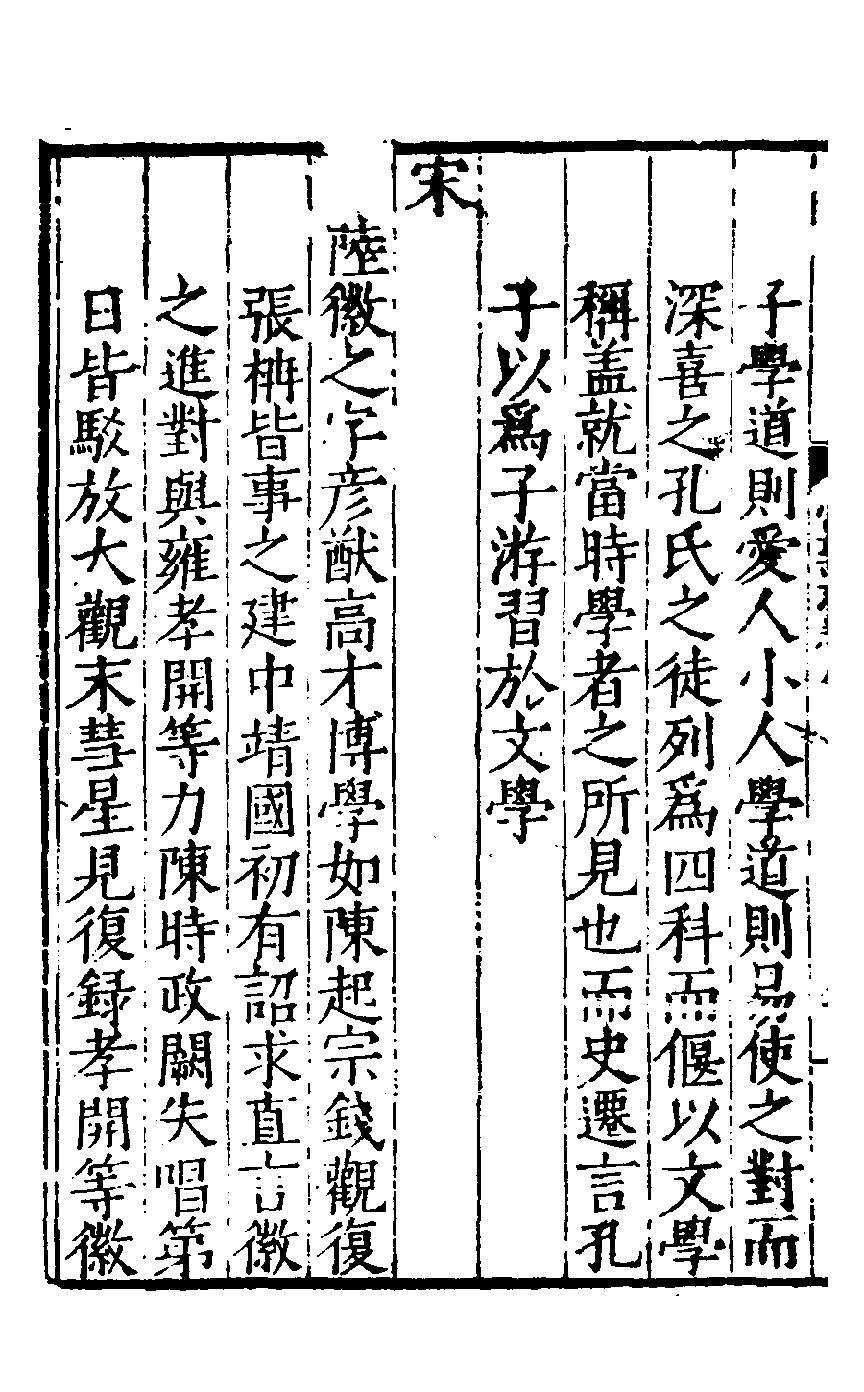 子學道則愛人小人學道則易使之對而
深喜之孔氏之徒列爲四科而偃以文學
稱盖就當時學者之所見也而史遷言孔
子以爲子游習於文學
宋
陸徽之字彦猷高才博學如陳起宗錢觀復
張枏皆事之建中靖國初有詔求直言徽
之進對與雍孝開等力陳時政闕失唱第
日皆駁放大觀末彗星見復録孝開等徽